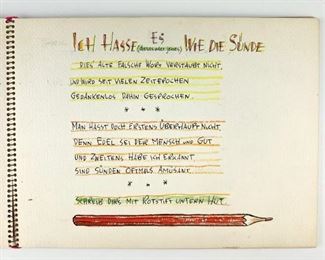 ICH HASSE ES WIE DIE SÜNDE
DIES' ALTE FALSCHE WORT VERSTAUBT NICHT,
UND WIRD SEIT VIELEN ZEITEPOCHEN
GEDANKENLOS DAHIN GESPROCHEN.
* * *
MAN HASST DOCH ERSTENS ÜBERHAUPT NICHT,
DENN EDEL SEI DER MENSCH UND GUT.
UND ZWEITENS HABE ICH ERKANNT,
SIND SÜNDEN OFTMALS AMÜSANT.
* * *
SCHREIB DIRS MIT ROTSTIFT UNTERN HUT.